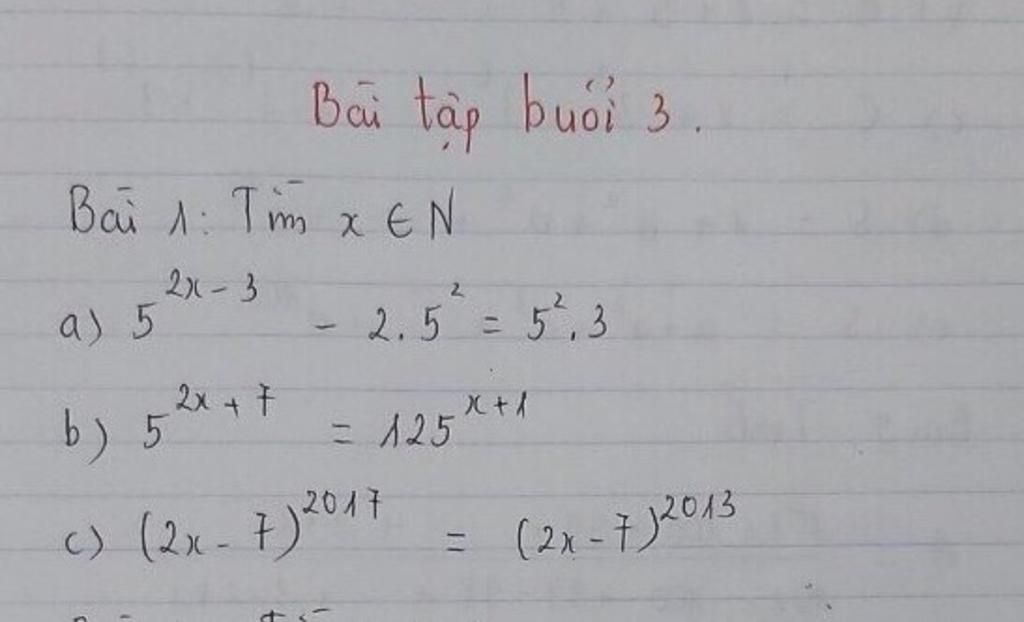 Bài tập buổi 3.
Bài 1: Tìm x ∈ N
a) 5^{2x-3} - 2.5^2 = 5^2.3
b) 5^{2x+7} = 125^{x+1}
c) (2x-7)^{2017} = (2x-7)^{2013}